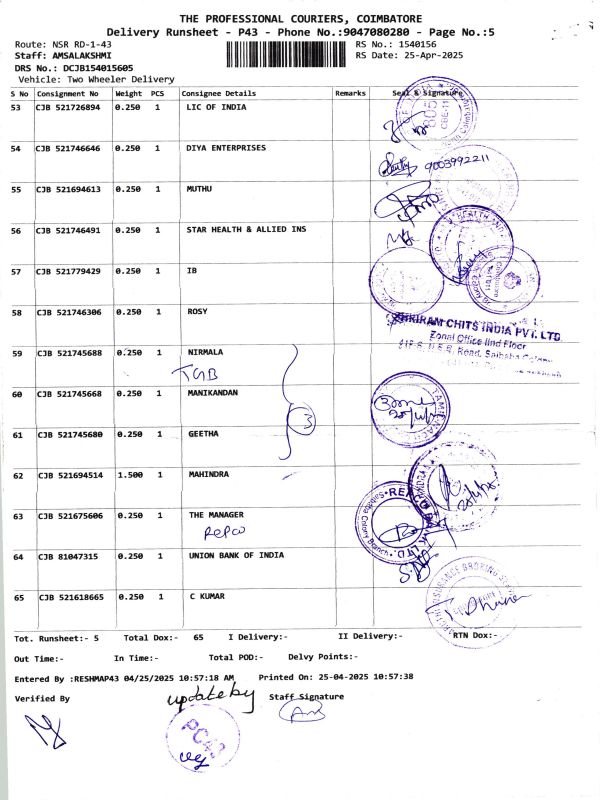 THE PROFESSIONAL COURIERS, COIMBATORE
Delivery Runsheet - P43 - Phone No.:9047080280 - Page No.:5
Route: NSR RD-1-43 RS No.: 1540156
Staff: AMSALAKSHMI RS Date: 25-Apr-2025
DRS No.: DCJB154015605
Vehicle: Two Wheeler Delivery
S No Consignment No Weight PCS Consignee Details Remarks Seal & Signature
53 CJB 521726894 0.250 1 LIC OF INDIA
805
CBE-11
54 CJB 521746646 0.250 1 DIYA ENTERPRISES
9003992211
55 CJB 521694613 0.250 1 MUTHU
56 CJB 521746491 0.250 1 STAR HEALTH & ALLIED INS
HEALTH AND
57 CJB 521779429 0.250 1 IB
58 CJB 521746306 0.250 1 ROSY
SHRIRAM CHITS INDIA PVT. LTD
Zonal Office IInd Floor
59 CJB 521745688 0.250 1 NIRMALA
TGB
60 CJB 521745668 0.250 1 MANIKANDAN
3
61 CJB 521745680 0.250 1 GEETHA
62 CJB 521694514 1.500 1 MAHINDRA
63 CJB 521675606 0.250 1 THE MANAGER
REPCO
64 CJB 81047315 0.250 1 UNION BANK OF INDIA
65 CJB 521618665 0.250 1 C KUMAR
Tot. Runsheet:- 5 Total Dox:- 65 I Delivery:- II Delivery:- RTN Dox:-
Out Time:- In Time:- Total POD:- Delvy Points:-
Entered By :RESHMAP43 04/25/2025 10:57:18 AM Printed On: 25-04-2025 10:57:38
Verified By update by Staff Signature
PC43